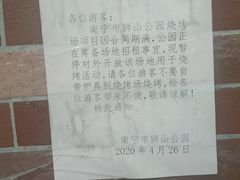 各位游客：
南宁市狮山公园烧烤
场项目因合同期满，公园正
在筹备场地招租事宜，现暂
停对外开放该场地用于烧
烤活动。请各位游客不要自
带炉具到烧烤场烧烤，给各
位游客带来不便，敬请谅解！
特此通知
南宁市狮山公园
2020年4月26日